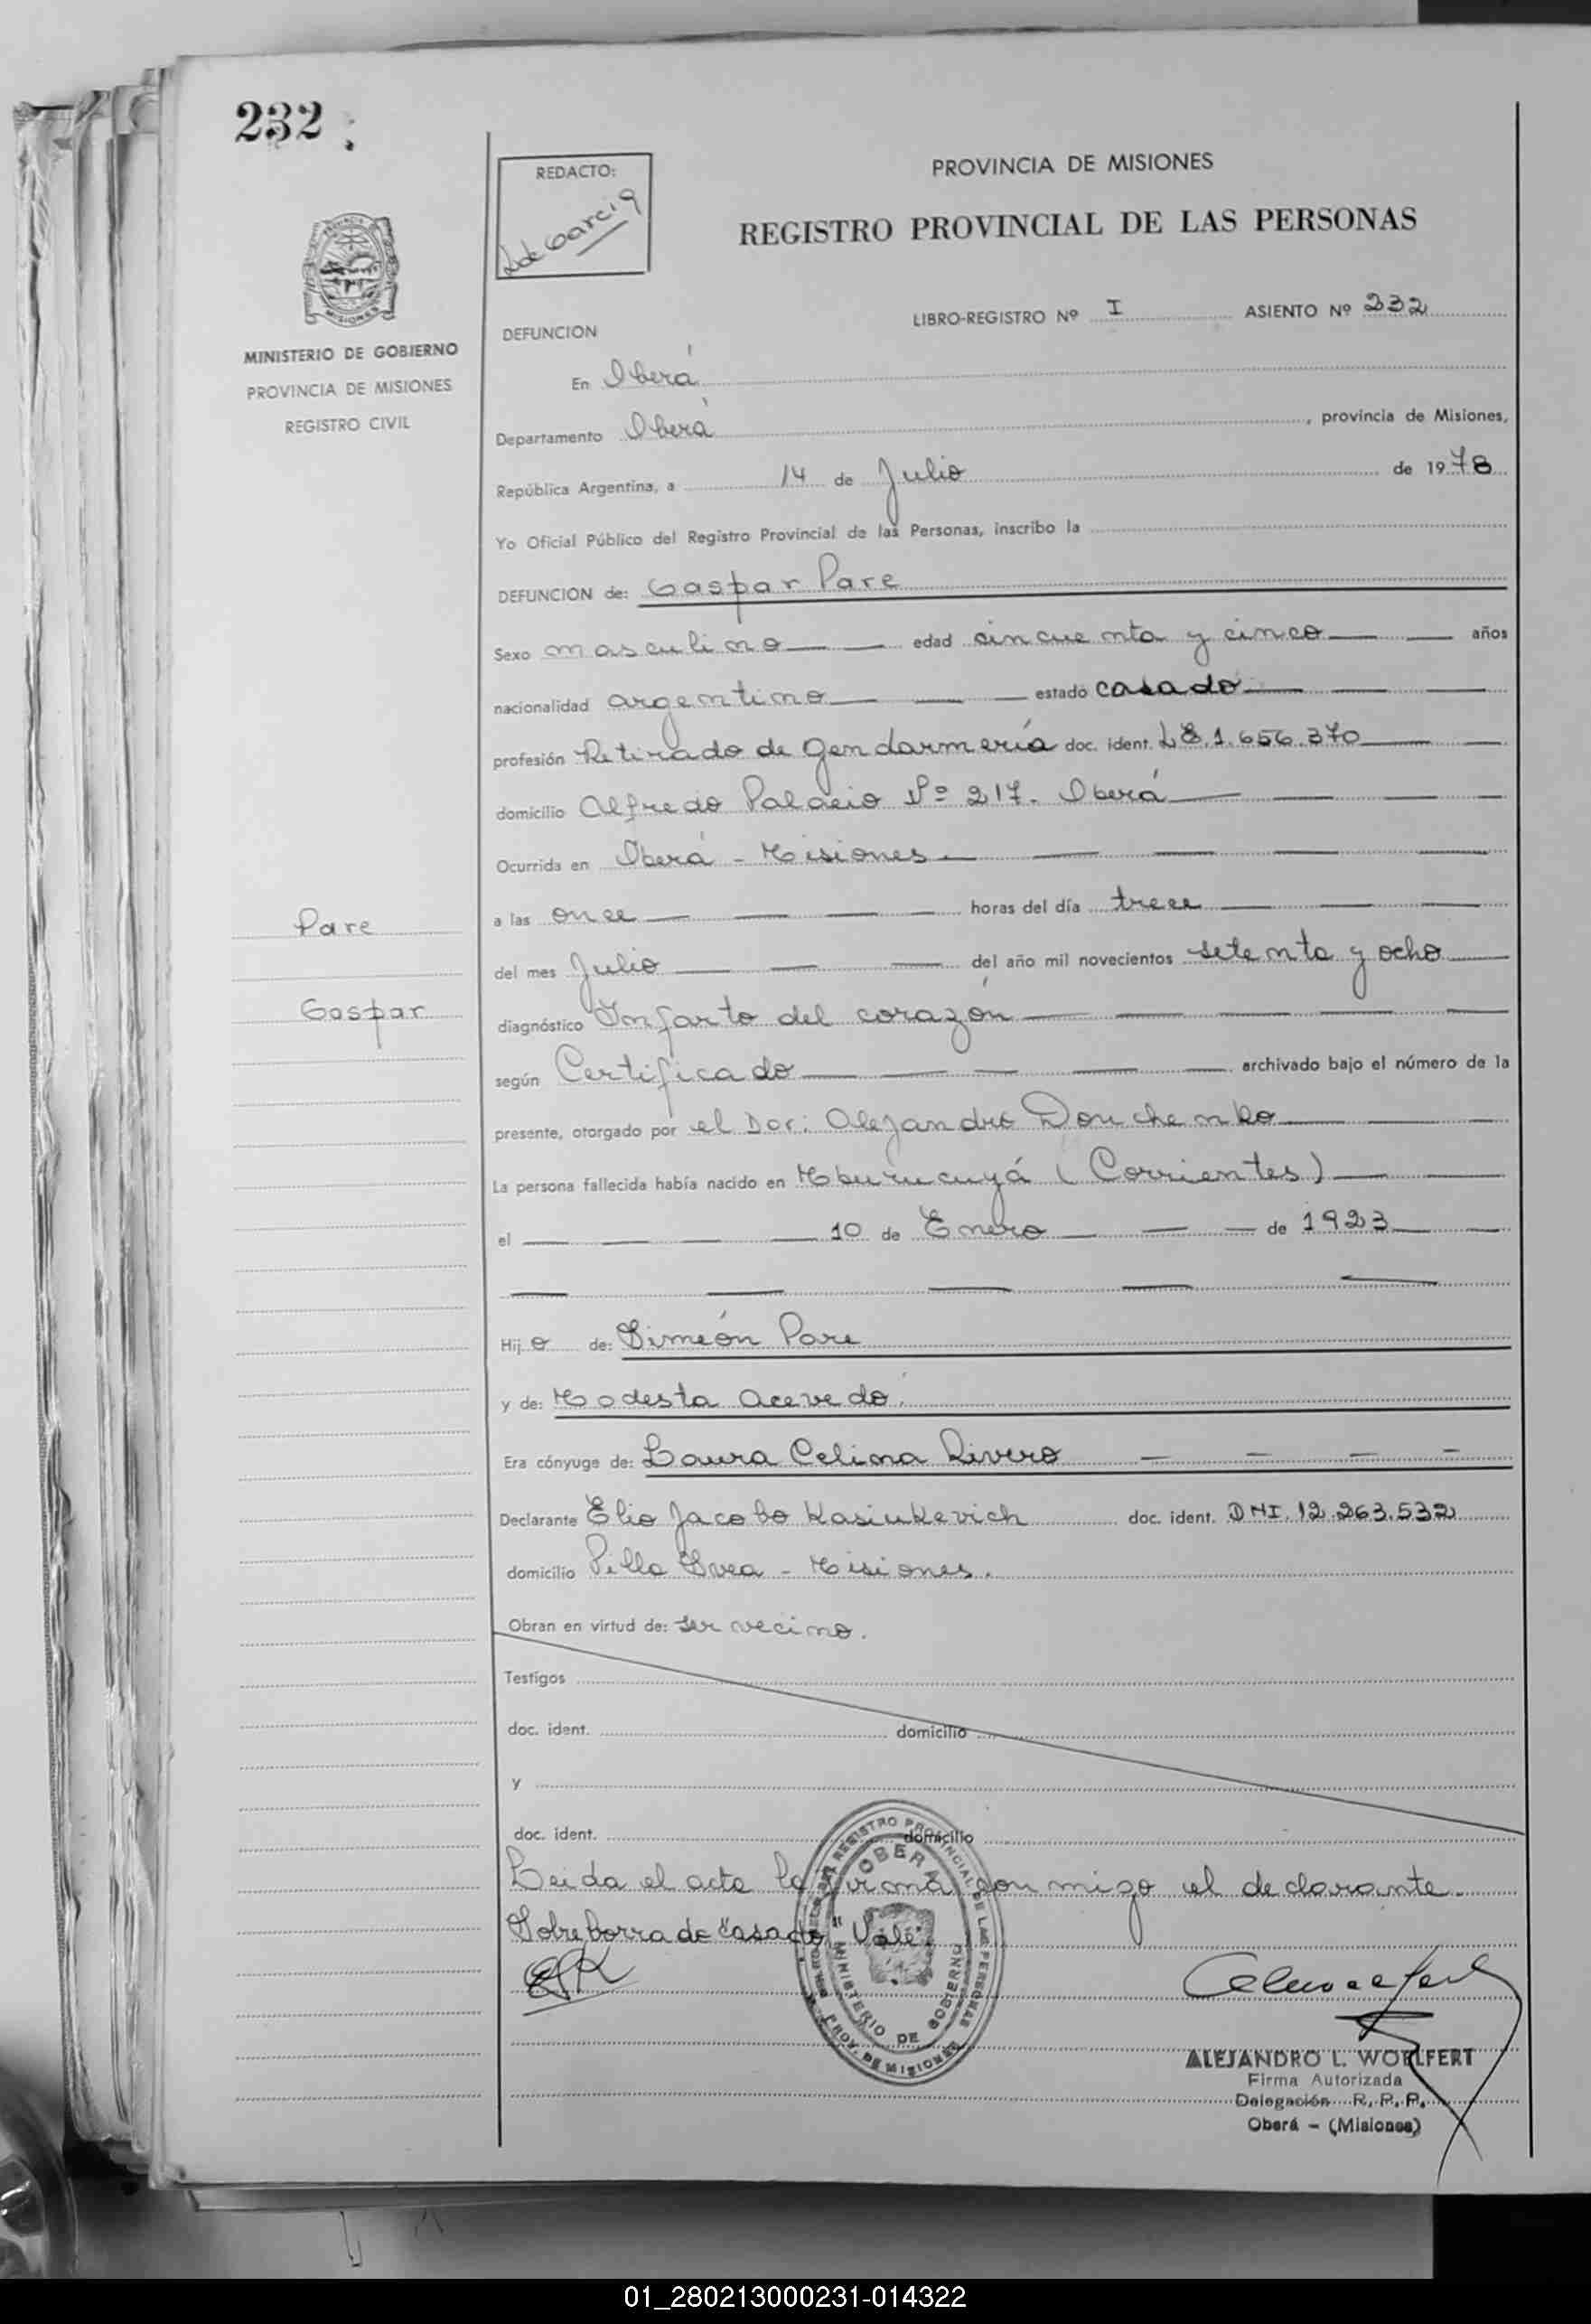 232
REDACTO:
de Garcia
PROVINCIA DE MISIONES
REGISTRO PROVINCIAL DE LAS PERSONAS
MISIONES
MINISTERIO DE GOBIERNO
PROVINCIA DE MISIONES
REGISTRO CIVIL
LIBRO-REGISTRO Nº I ASIENTO Nº 232
DEFUNCION
En Oberá
Departamento Oberá, provincia de Misiones,
República Argentina, a 14 de Julio de 1978
Yo Oficial Público del Registro Provincial de las Personas, inscribo la
DEFUNCION de: Gaspar Pare
Sexo masculino edad cincuenta y cinco años
nacionalidad argentino estado casado
profesión Retirado de Gendarmería doc. ident. L8.1.656.370
domicilio Alfredo Palacio Nº 217. Oberá
Ocurrida en Oberá - Misiones
Pare
a las once horas del día trece
del mes Julio del año mil novecientos setenta y ocho
Gaspar
diagnóstico Infarto del corazón
según Certificado archivado bajo el número de la
presente, otorgado por el Dor: Alejandro Donchenko
La persona fallecida había nacido en Mburucuyá (Corrientes)
el 10 de Enero de 1923
Hijo de: Simeón Pare
y de: Modesta Acevedo.
Era cónyuge de: Laura Celina Rivero
Declarante Elio Jacobo Kasiukevich doc. ident. DNI. 12.263.532
domicilio Villa Svea - Misiones.
Obran en virtud de: ser vecino.
Testigos
doc. ident. domicilio
y
doc. ident. domicilio
Leida el acta la firma conmigo el declarante.
Sobreborrado "casado" Vale.
REGISTRO PROVINCIAL DE LAS PERSONAS
OBERA
MINISTERIO DE GOBIERNO
PROV. DE MISIONES
ALEJANDRO L. WOELFERT
Firma Autorizada
Delegación R. P. P.
Oberá - (Misiones)
01_280213000231-014322